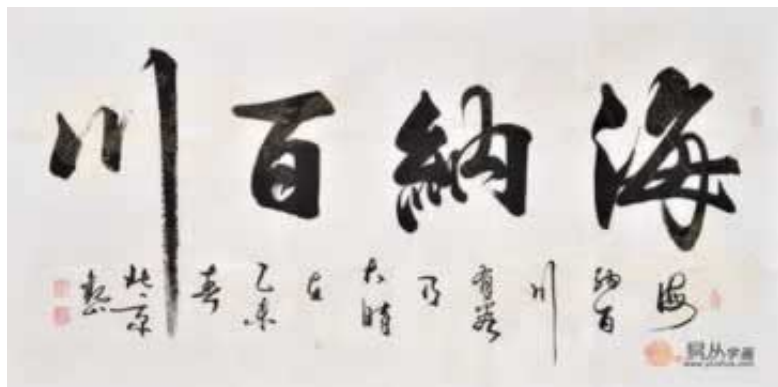 海納百川
海
納百
川
有容
乃
大時
在
乙未
春
北京
易从字画